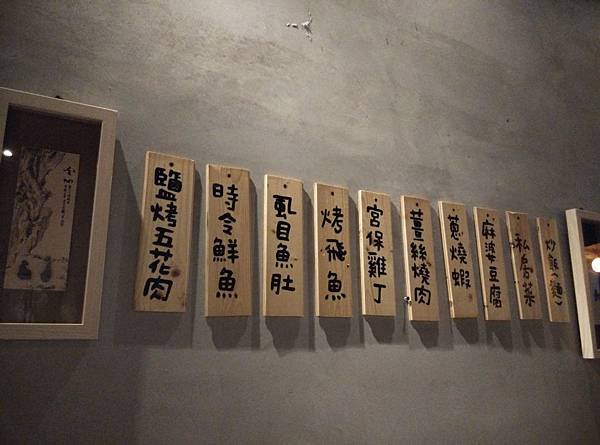 鹽烤五花肉
時令鮮魚
虱目魚肚
烤飛魚
宮保雞丁
薑絲燒肉
蔥燒蝦
麻婆豆腐
私房菜
炒飯(麵)